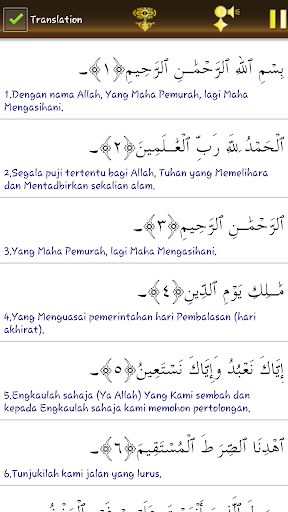 Translation
بِسْمِ ٱللَّهِ ٱلرَّحْمَـٰنِ ٱلرَّحِيمِ﴿١﴾۔
1.Dengan nama Allah, Yang Maha Pemurah, lagi Maha
Mengasihani.
ٱلْحَمْدُ لِلَّهِ رَبِّ ٱلْعَـٰلَمِينَ﴿٢﴾۔
2.Segala puji tertentu bagi Allah, Tuhan yang Memelihara
dan Mentadbirkan sekalian alam.
ٱلرَّحْمَـٰنِ ٱلرَّحِيمِ﴿٣﴾۔
3.Yang Maha Pemurah, lagi Maha Mengasihani.
مَـٰلِكِ يَوْمِ ٱلدِّينِ﴿٤﴾۔
4.Yang Menguasai pemerintahan hari Pembalasan (hari
akhirat).
إِيَّاكَ نَعْبُدُ وَإِيَّاكَ نَسْتَعِينُ﴿٥﴾۔
5.Engkaulah sahaja (Ya Allah) Yang Kami sembah dan
kepada Engkaulah sahaja kami memohon pertolongan.
ٱهْدِنَا ٱلصِّرَ ٰطَ ٱلْمُسْتَقِيمَ﴿٦﴾۔
6.Tunjukilah kami jalan yang lurus.